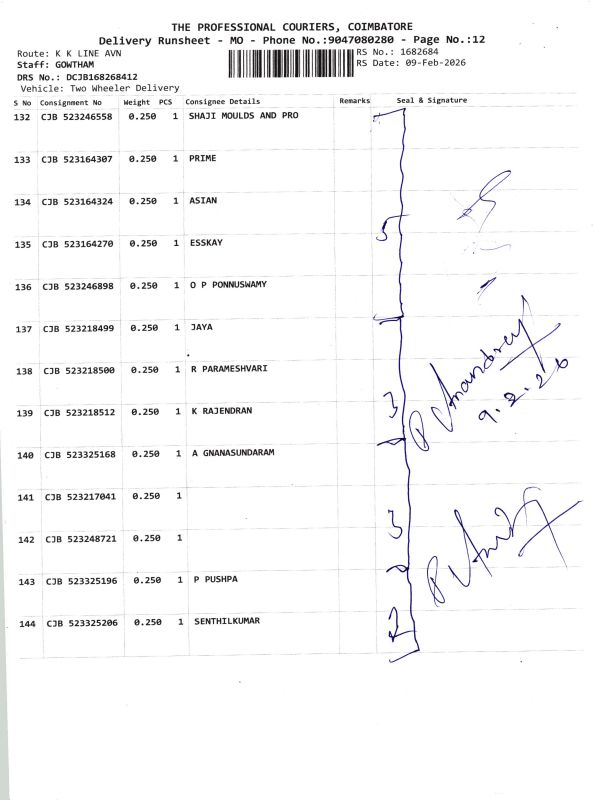 THE PROFESSIONAL COURIERS, COIMBATORE
Delivery Runsheet - MO - Phone No.:9047080280 - Page No.:12
Route: K K LINE AVN
RS No.: 1682684
Staff: GOWTHAM
RS Date: 09-Feb-2026
DRS No.: DCJB168268412
Vehicle: Two Wheeler Delivery
S No Consignment No Weight PCS Consignee Details Remarks Seal & Signature
132 CJB 523246558 0.250 1 SHAJI MOULDS AND PRO
133 CJB 523164307 0.250 1 PRIME
134 CJB 523164324 0.250 1 ASIAN
5
135 CJB 523164270 0.250 1 ESSKAY
136 CJB 523246898 0.250 1 O P PONNUSWAMY
137 CJB 523218499 0.250 1 JAYA
138 CJB 523218500 0.250 1 R PARAMESHVARI
139 CJB 523218512 0.250 1 K RAJENDRAN
3
9.2.26
140 CJB 523325168 0.250 1 A GNANASUNDARAM
141 CJB 523217041 0.250 1
3
142 CJB 523248721 0.250 1
143 CJB 523325196 0.250 1 P PUSHPA
144 CJB 523325206 0.250 1 SENTHILKUMAR
2